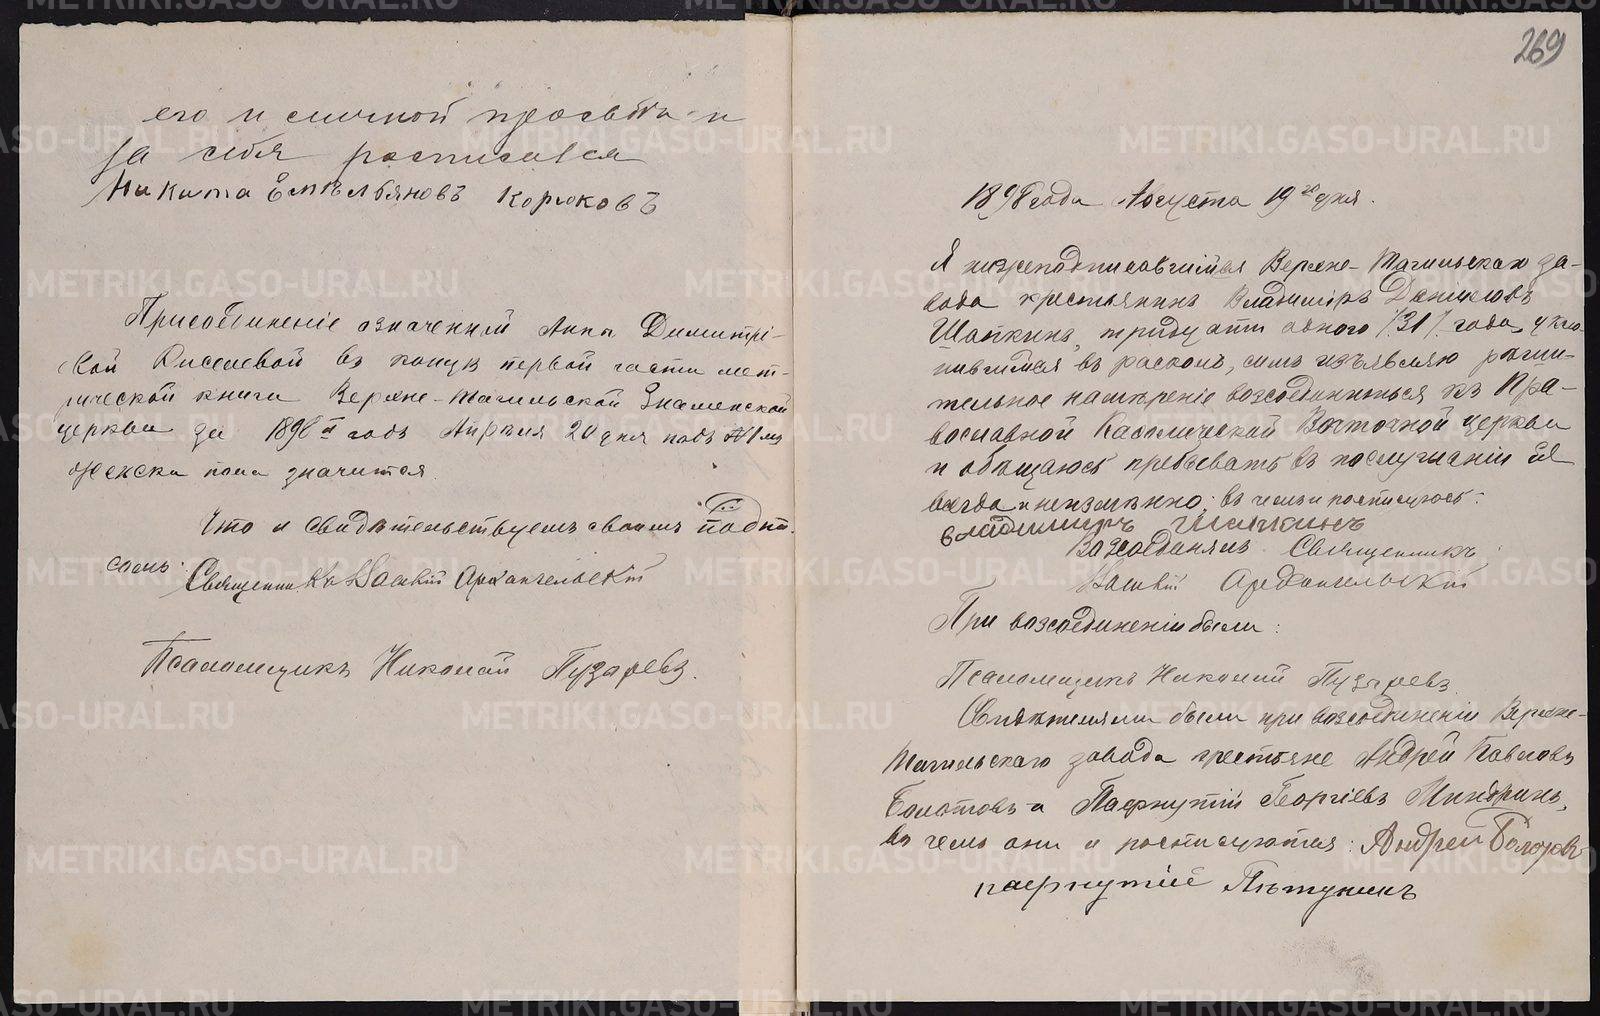 его и личной просьбѣ и
за себя росписался
Никита Емельяновъ Корюковъ
Присоединеніе означенной Анны Димитріе-
вой Киселевой въ концѣ первой части мет-
рической книги Верхне-Тагильской Знаменской
церкви за 1898й годъ Апрѣля 20 дня подъ №1мъ
женска пола значится.
Что и свидѣтельствуемъ своимъ подпи-
сомъ: Священникъ Василій Архангельскій
Псаломщикъ Николай Пузыревъ.
269
1898 года Августа 19го дня.
Я нижеподписавшійся Верхне-Тагильскаго за-
вода крестьянинъ Владиміръ Даниловъ
Шапкинъ, тридцати одного /31/ года, укло-
нившійся въ расколъ, симъ изъявляю рѣши-
тельное намѣреніе возсоединиться къ Пра-
вославной Каѳолической Восточной церкви
и обѣщаюсь пребывать въ послушаніи Ея
всегда и неизмѣнно; въ чемъ и росписуюсь:
Владимиръ Шапкинъ
Возсоединялъ Священникъ
Василій Архангельскій
При возсоединеніи были:
Псаломщикъ Николай Пузыревъ
Свидѣтелями были при возсоединеніи Верхне-
Тагильскаго завода крестьяне Андрей Павловъ
Болотовъ и Пафнутій Георгіевъ
въ чемъ они и росписуются: Андрей Болотовъ
Пафнутій
METRIKI.GASO-URAL.RU